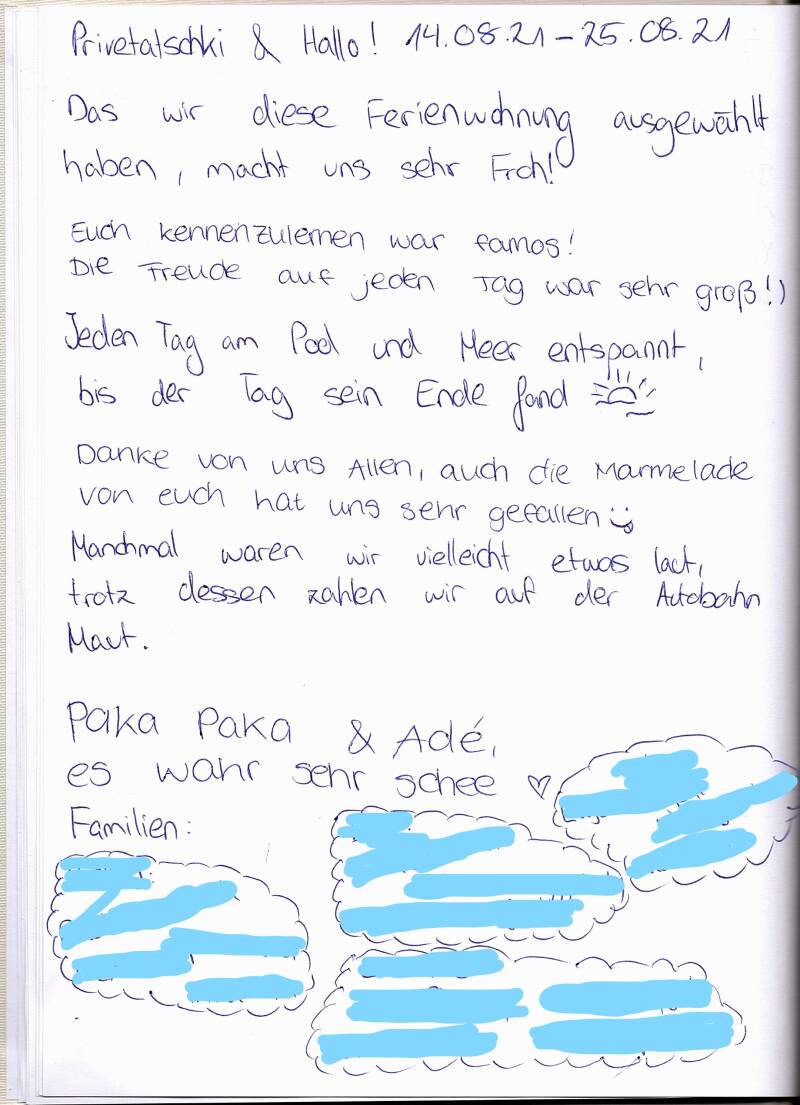 Privetatschki & Hallo! 14.08.21 - 25.08.21
Das wir diese Ferienwohnung ausgewählt
haben, macht uns sehr Froh!
Euch kennenzulernen war famos!
Die Freude auf jeden Tag war sehr groß!)
Jeden Tag am Pool und Meer entspannt,
bis der Tag sein Ende fand
Danke von uns Allen, auch die Marmelade
von euch hat uns sehr gefallen
Manchmal waren wir vielleicht etwas laut,
trotz dessen zahlen wir auf der Autobahn
Maut.
Paka Paka & Adé,
es wahr sehr schee ♡
Familien: